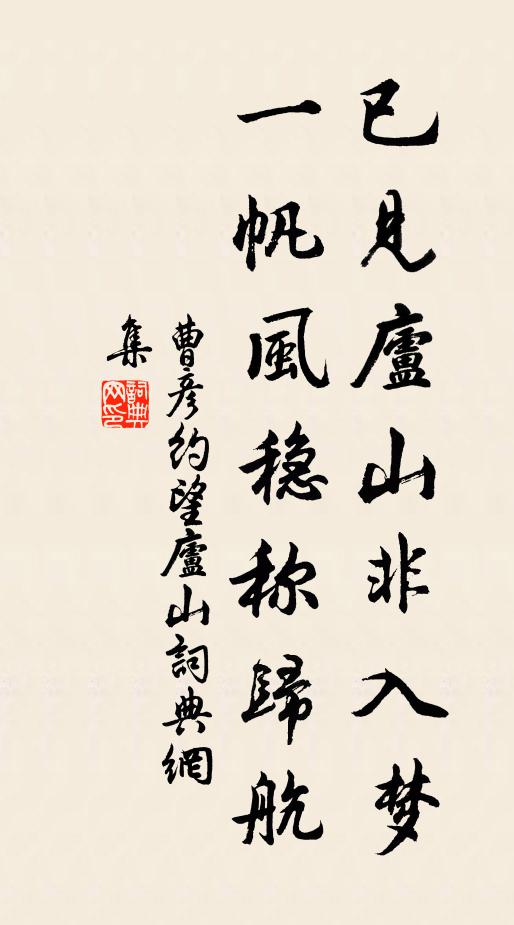 已見廬山非入梦
一帆風稳称歸航
曹彦约望廬山詞典網
集
詞典网印